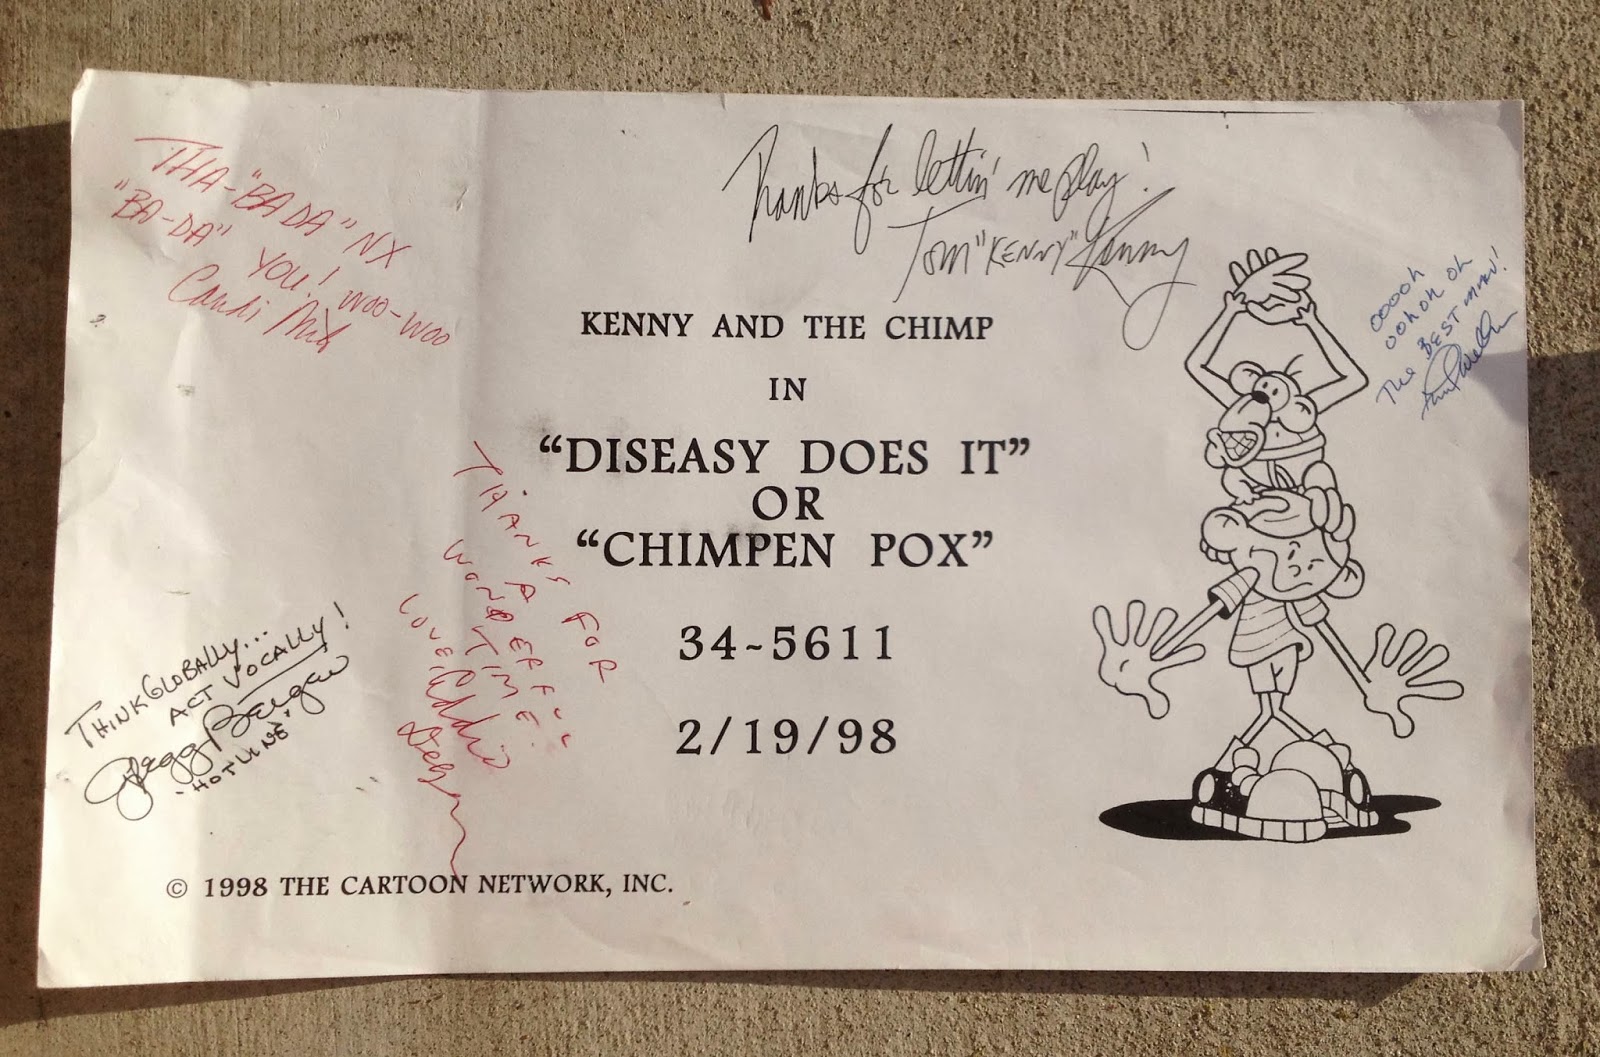 Thanks for lettin' me play!
Tom "KENNY" Kenny
THA-"BADA" NX
"BA-DA" YOU! WOO-WOO
Candi Milo
ooooh
ooh oh oh
THE BEST MAN!
KENNY AND THE CHIMP
IN
"DISEASY DOES IT"
OR
"CHIMPEN POX"
34-5611
2/19/98
THANKS FOR
A
WONDERFF"
TIME
LOVE,
THINK GLOBALLY...
ACT VOCALLY!
Gregg Berger
'HOTLINE'
© 1998 THE CARTOON NETWORK, INC.